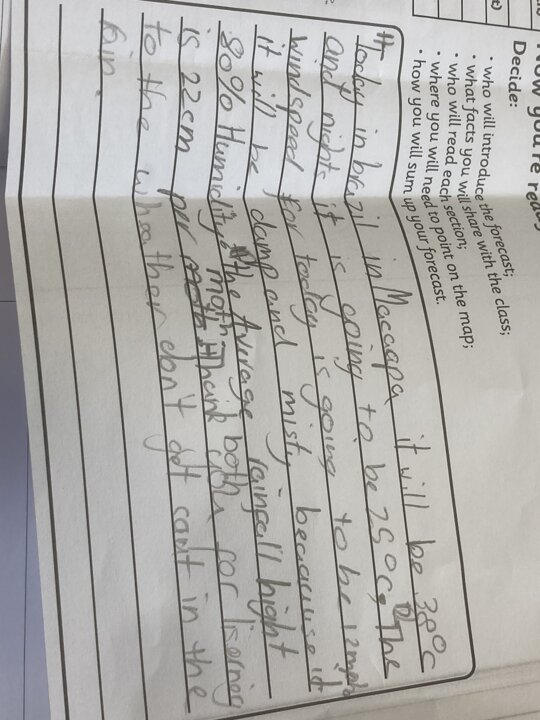 Now you're
Decide:
• who will introduce the forecast;
• what facts you will share with the class;
• who will read each section;
• where you will need to point on the map;
• how you will sum up your forecast.
Today in brazil in Maccapa it will be 38°C
And nights it is going to be 25°c, The
Windspeed for today is going to be 12mph
it will be damp and misty because it
80% Humidity the Average rainfall hight
is 22cm per month Thank for lisening
to the wheather don't get in the